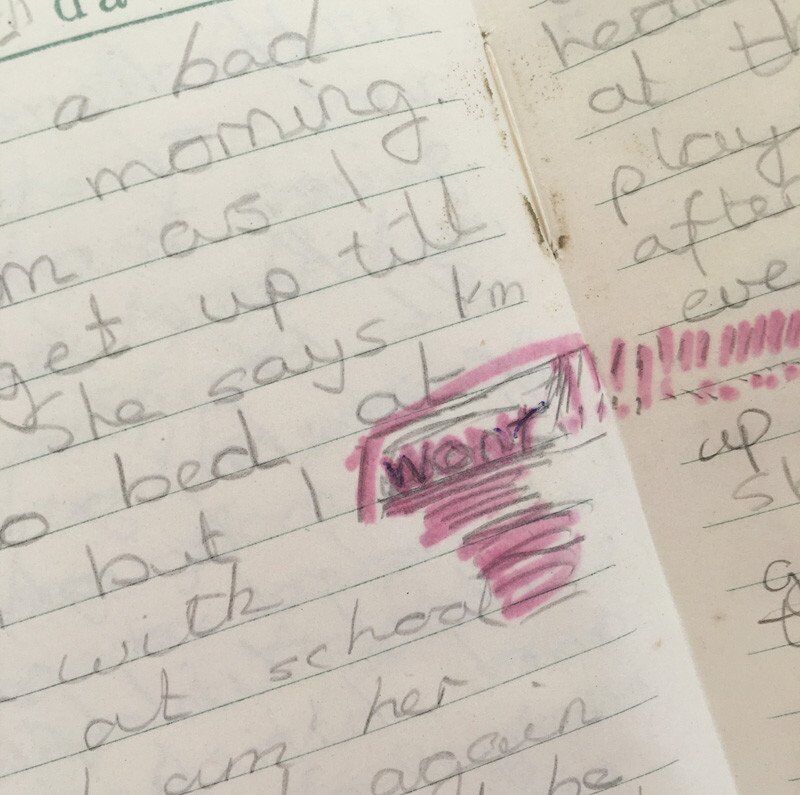 da
a bad
morning.
m as I
get up till
She says I'm
o bed at
but I wont !!!!
with
at school
at her
I am again
he
at th
play
after
eve
up